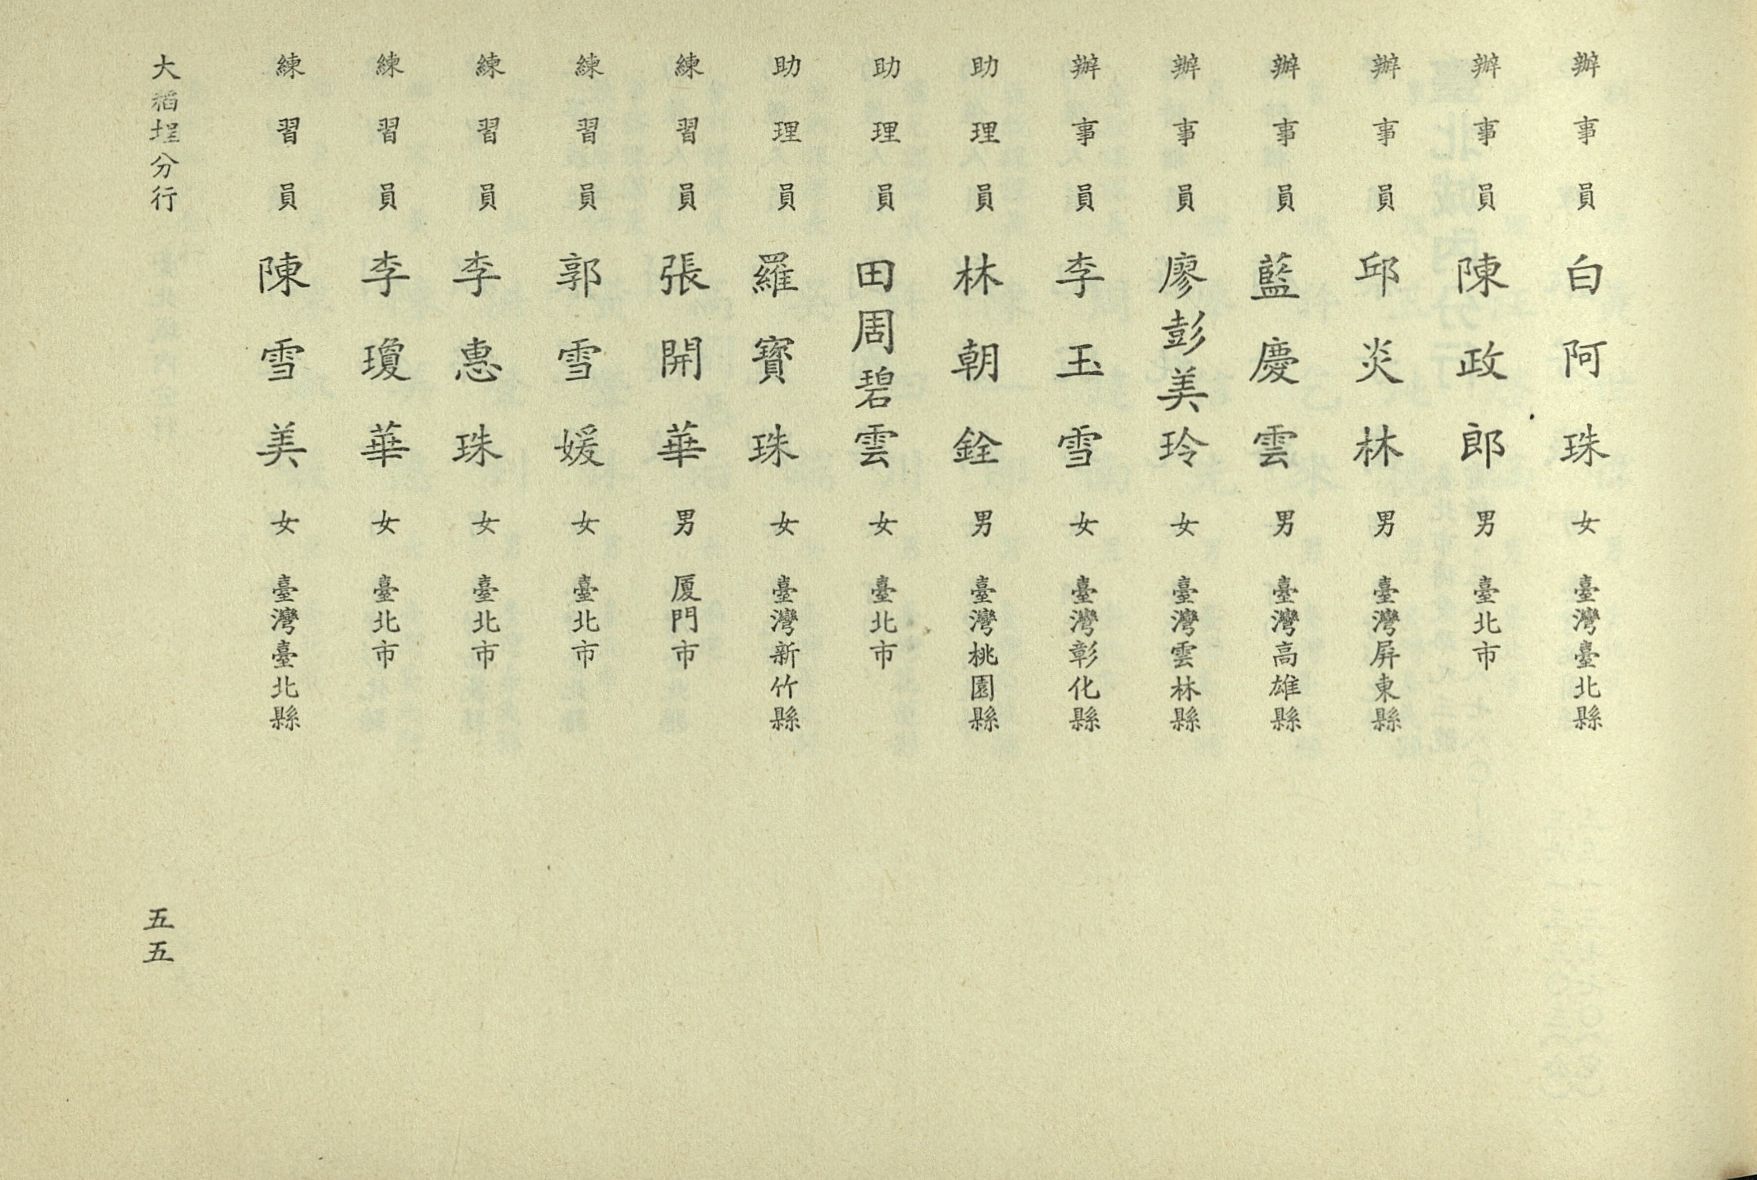 辦事員 白阿珠 女 臺灣臺北縣
辦事員 陳政郎 男 臺北市
辦事員 邱炎林 男 臺灣屏東縣
辦事員 藍慶雲 男 臺灣高雄縣
辦事員 廖彭美玲 女 臺灣雲林縣
辦事員 李玉雪 女 臺灣彰化縣
助理員 林朝銓 男 臺灣桃園縣
助理員 田周碧雲 女 臺北市
助理員 羅寶珠 女 臺灣新竹縣
練習員 張開華 男 厦門市
練習員 郭雪媛 女 臺北市
練習員 李惠珠 女 臺北市
練習員 李瓊華 女 臺北市
練習員 陳雪美 女 臺灣臺北縣
大稻埕分行
五五